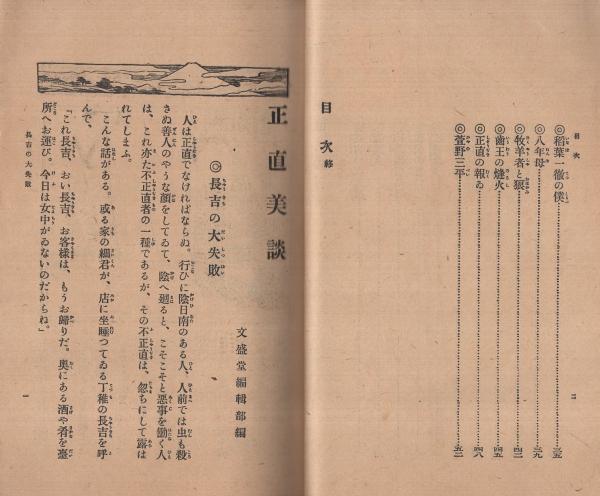 目次
◎稻葉一徹の僕 三五
◎八年母 三九
◎牧羊者と狼 四二
◎齒王の烽火 四五
◎正直の報ゐ 四八
◎萱野三平 五二
目次終
二
正直美談
文盛堂編輯部編
◎長吉の大失敗
人は正直でなければならぬ。行ひに陰日南のある人、人前では虫も殺
さぬ善人のやうな顔をしてゐて、陰へ廻ると、こそこそと悪事を働く人
は、これ亦た不正直者の一種であるが、その不正直は、忽ちにして露は
れてしまふ。
こんな話がある。或る家の細君が、店に坐睡つてゐる丁稚の長吉を呼
んで、
「これ長吉、おい長吉、お客樣は、もうお歸りだ。奧にある酒や肴を臺
所へお運び。今日は女中がゐないのだからね」
長吉の大失敗
一